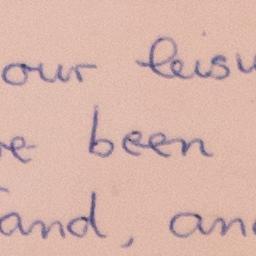 our leisu
e been
and, and